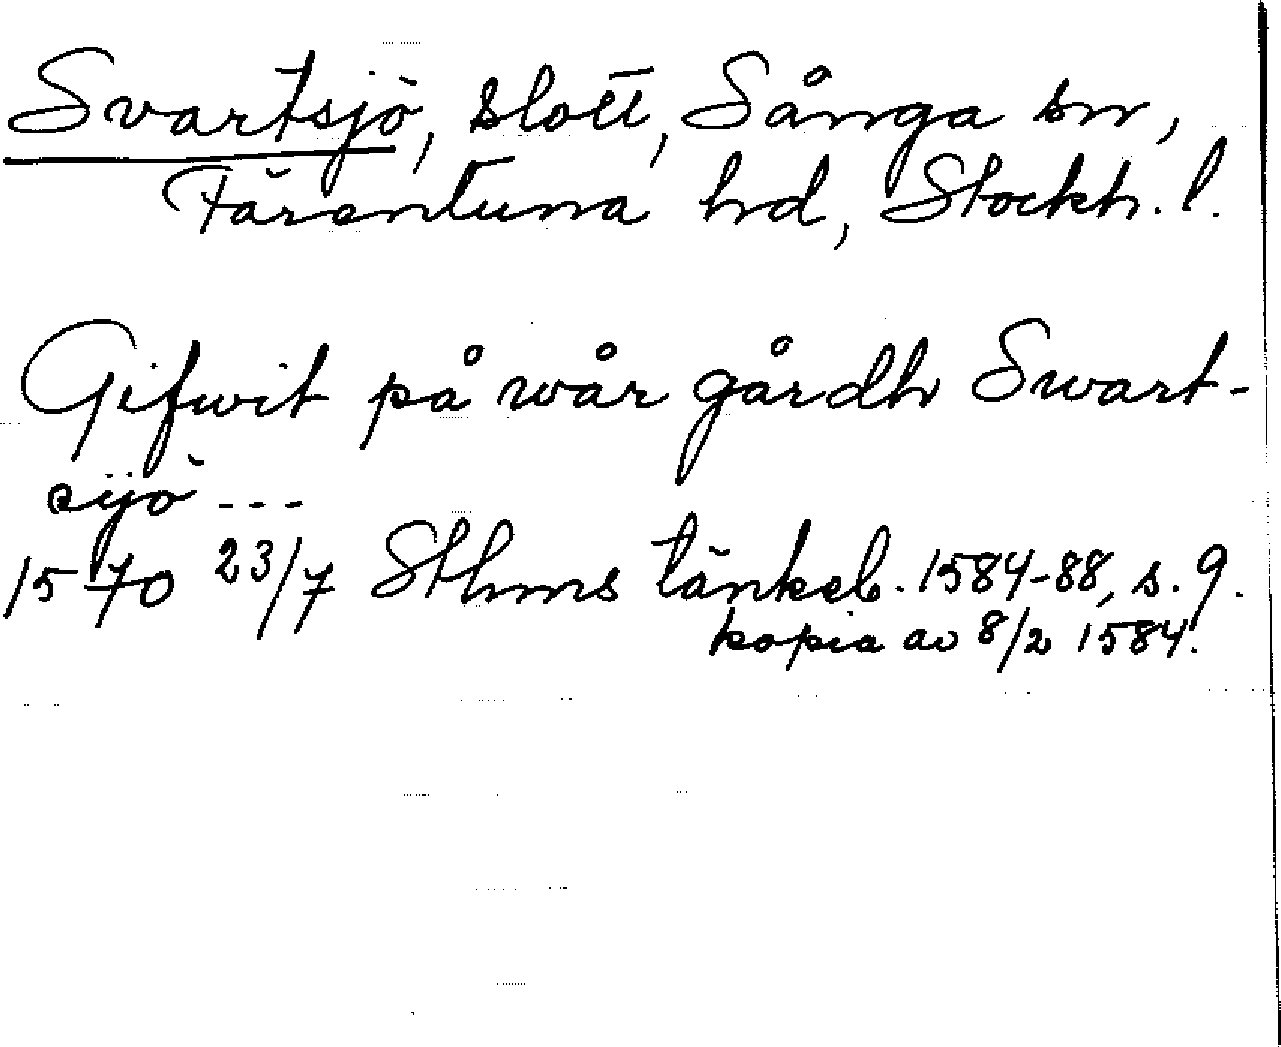 Svartsjö, slott, Sånga sn,
Färentuna hd, Stockh. l.
Gifwit på wår gårdh Swart-
sijö ---
1570 23/7 Sthms tänkeb. 1584-88, s. 9.
kopia av 8/2 1584.